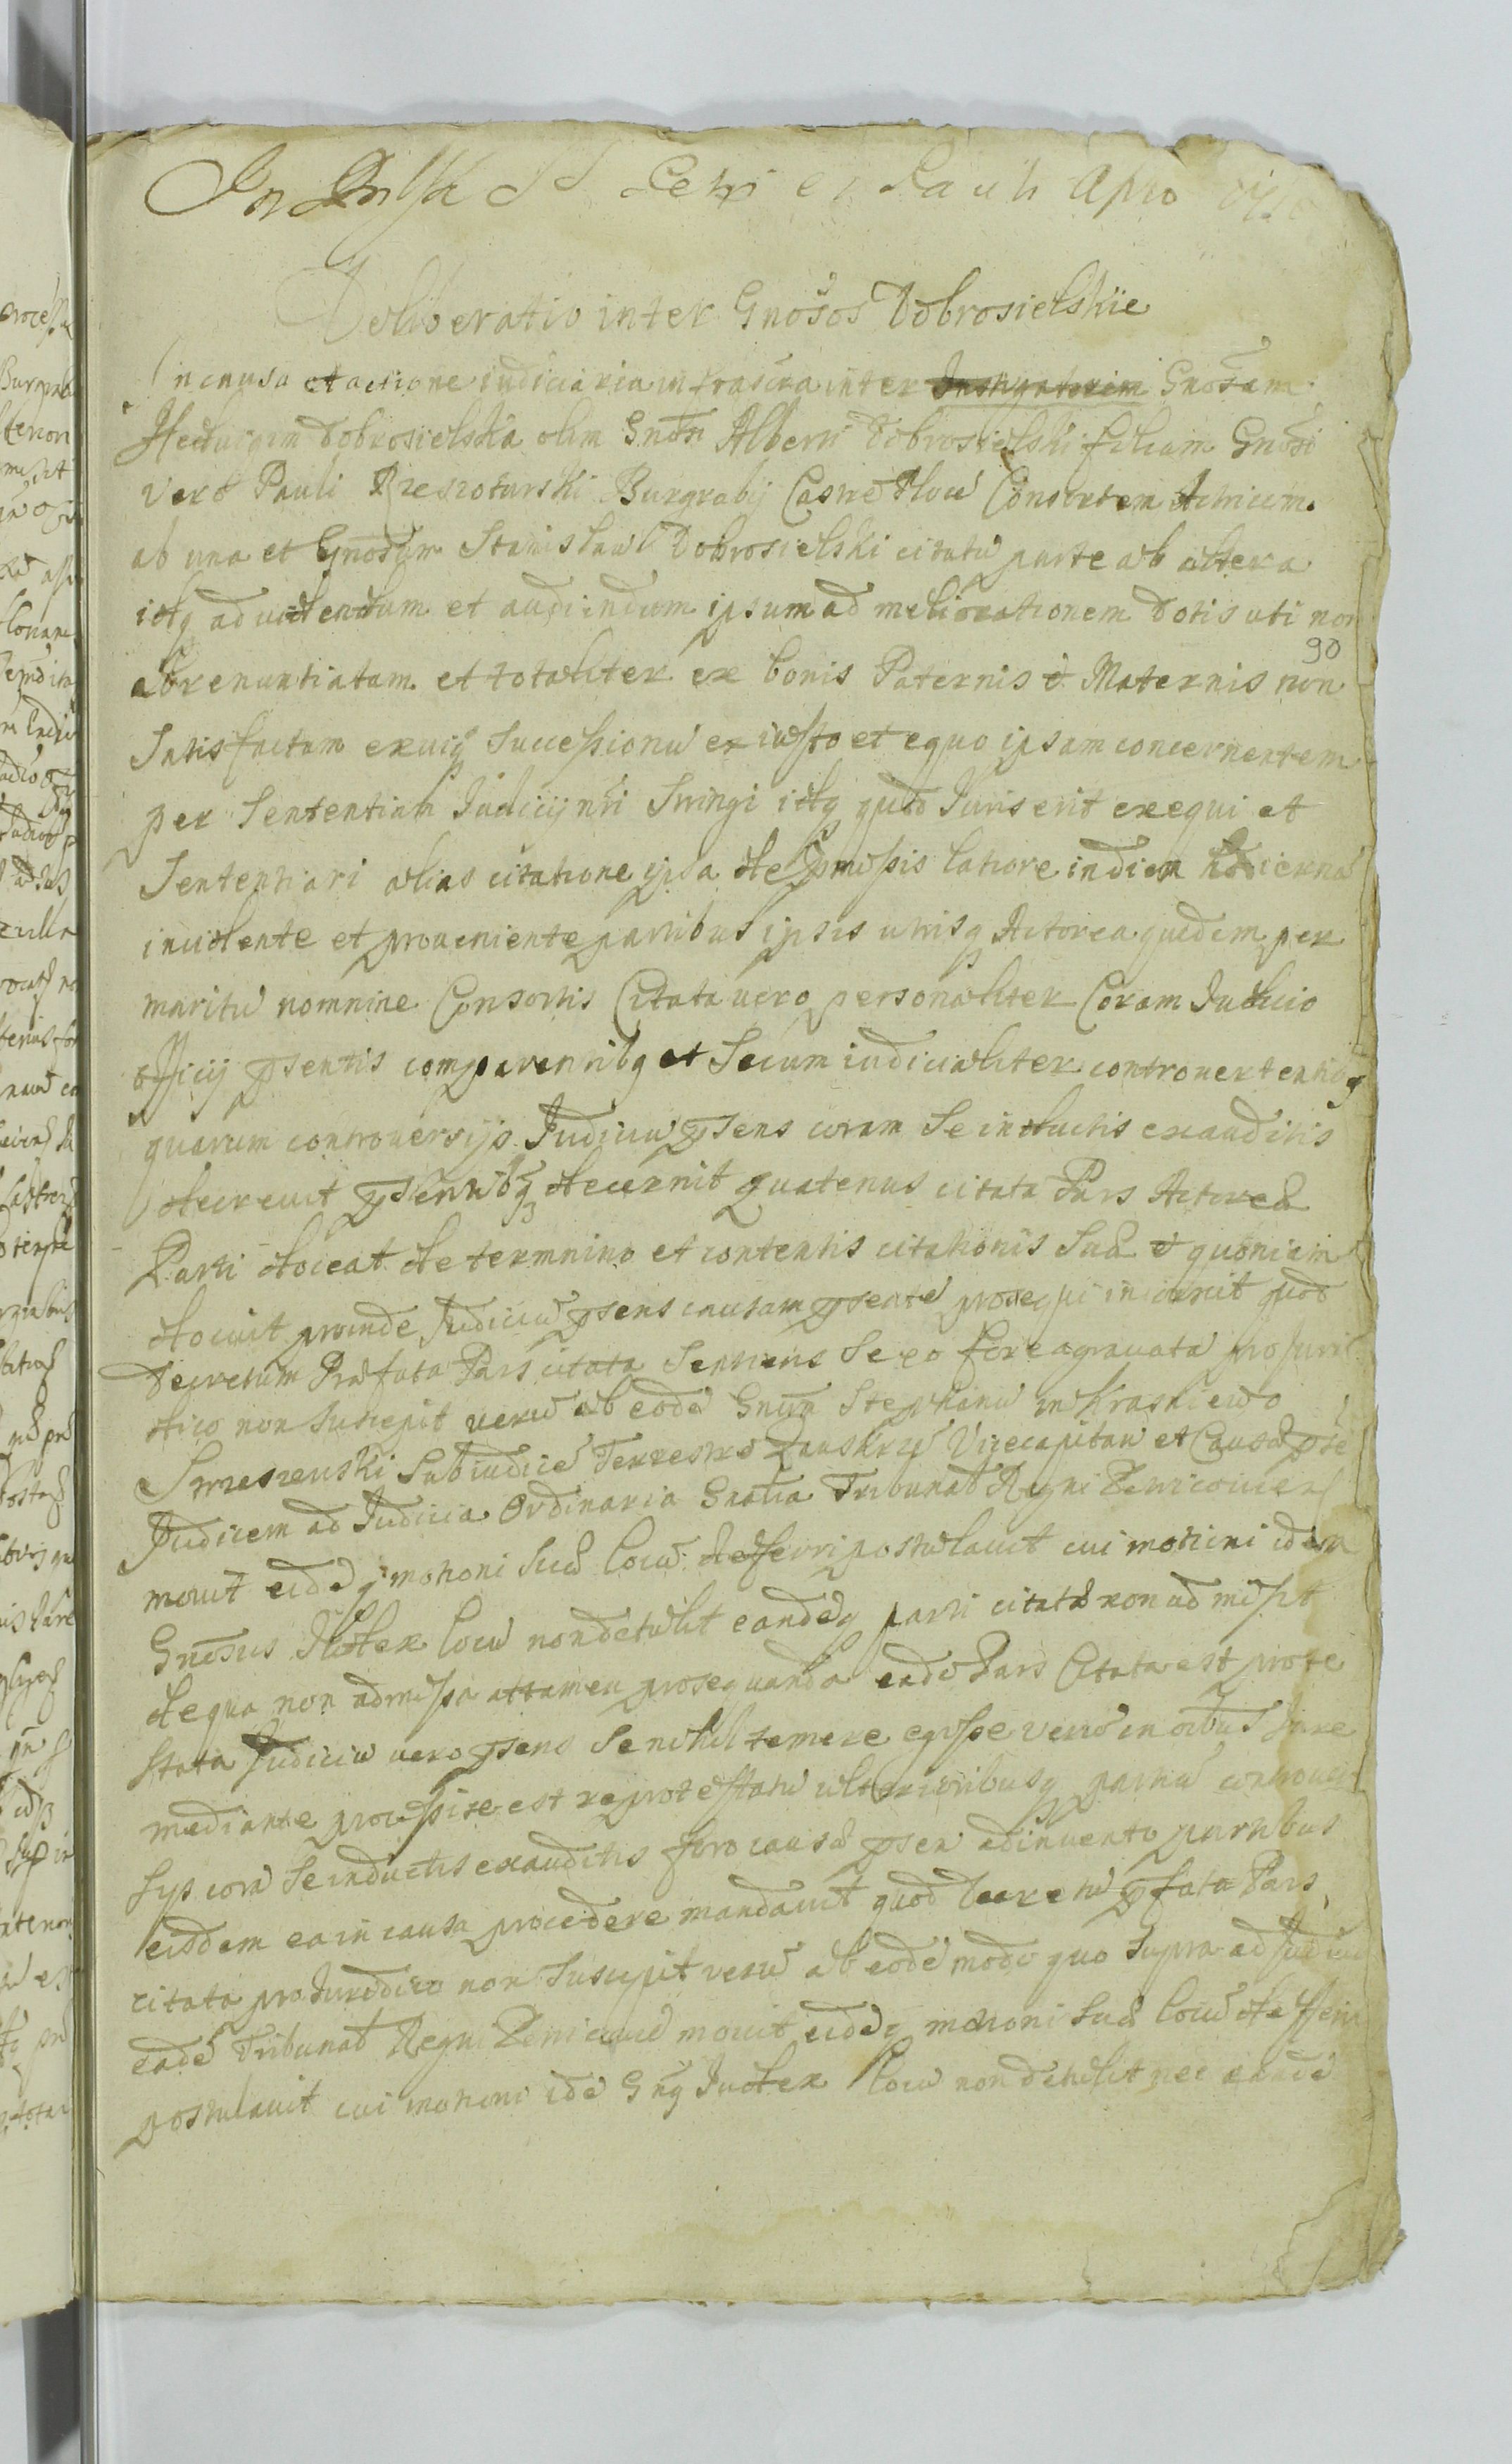 In SS Petri et Pauli Apto
Deliberatio inter Gnosos Dobrosielskie
In causa et actione iudiciaria infrascra inter Instigatorem Gnosam
Heduigim Dobrosielska olim Gnosi Alberti Dobrosielski filiam Gnosi
vero Pauli Rzeszotarski Burgrabij Castre Consortem Actricem
ab una et Gnosum Stanislaw Dobrosielski citatu parte ab altera
idq ad videndum et audiendum ipsum ad meliorationem dotis uti non
90
abrenuntiatam et totaliter ex bonis Paternis et Maternis non
Satisfactam exuig Successionu ex iusto et equo ipsam concernentem
per Sententiam Judicij nri Stringi idq quod Juris erit exequi et
Sententiari alias citatione ipsa de pmissis latiore in diem hodierna
incidente et proueniente partibus ipsis utrisq Actorea quidem per
maritu nomnine Consortis Citata vero personaliter Coram Judicio
officij psentis comparentibq et Secum iudicialiter controuertentibq
quarum controuersijs Judiciu psens coram Se inductis exauditis
decreuit psentibq decernit quatenus citata Pars Actorea
Parti doceat de termnino et contentis citationis Sua et quoniam
docuit proinde Judiciu psens causam psente prosequi iniunxit quod
Decretum Prafata Pars citata Sentiens Se eo fore agrauata pro Juri
dico non Suscepit veru ab eode Gnoso Stephanu in Kraskiewo
Smeszewski Subiudice Terrestre Zauskrze Vicecapitan et Causa pse
Judicem ad Judicia Ordinaria Gnalia Tribunat Regni Petricouien
mouit eideq motioni Sua locu defferri postulauit cui motioni idem
Gnosus Judex locu non detulit eandeq parti citata non admisit
de qua non admissa attamen prosequanda eade Pars Citata est prote
stata Judiciu vero psens Se nihil temere egisse veru in oibus Jure
mediante processisse est reprotestatu ulterioribusq partiu controuer
sijs cora Se inductis exauditis foro causa psen adinuento partibus
eisdem ea in causa procedere mandauit quod decretu pfata Pars
citata pro Juridico non Suscepit veru ab eode modo quo Supra ad Judicia
eade Tribunat Regni Petricouie mouit eideq motioni Sua locu defferri
postulauit cui motioni ide Gnq Judex locu non detulit nec eande